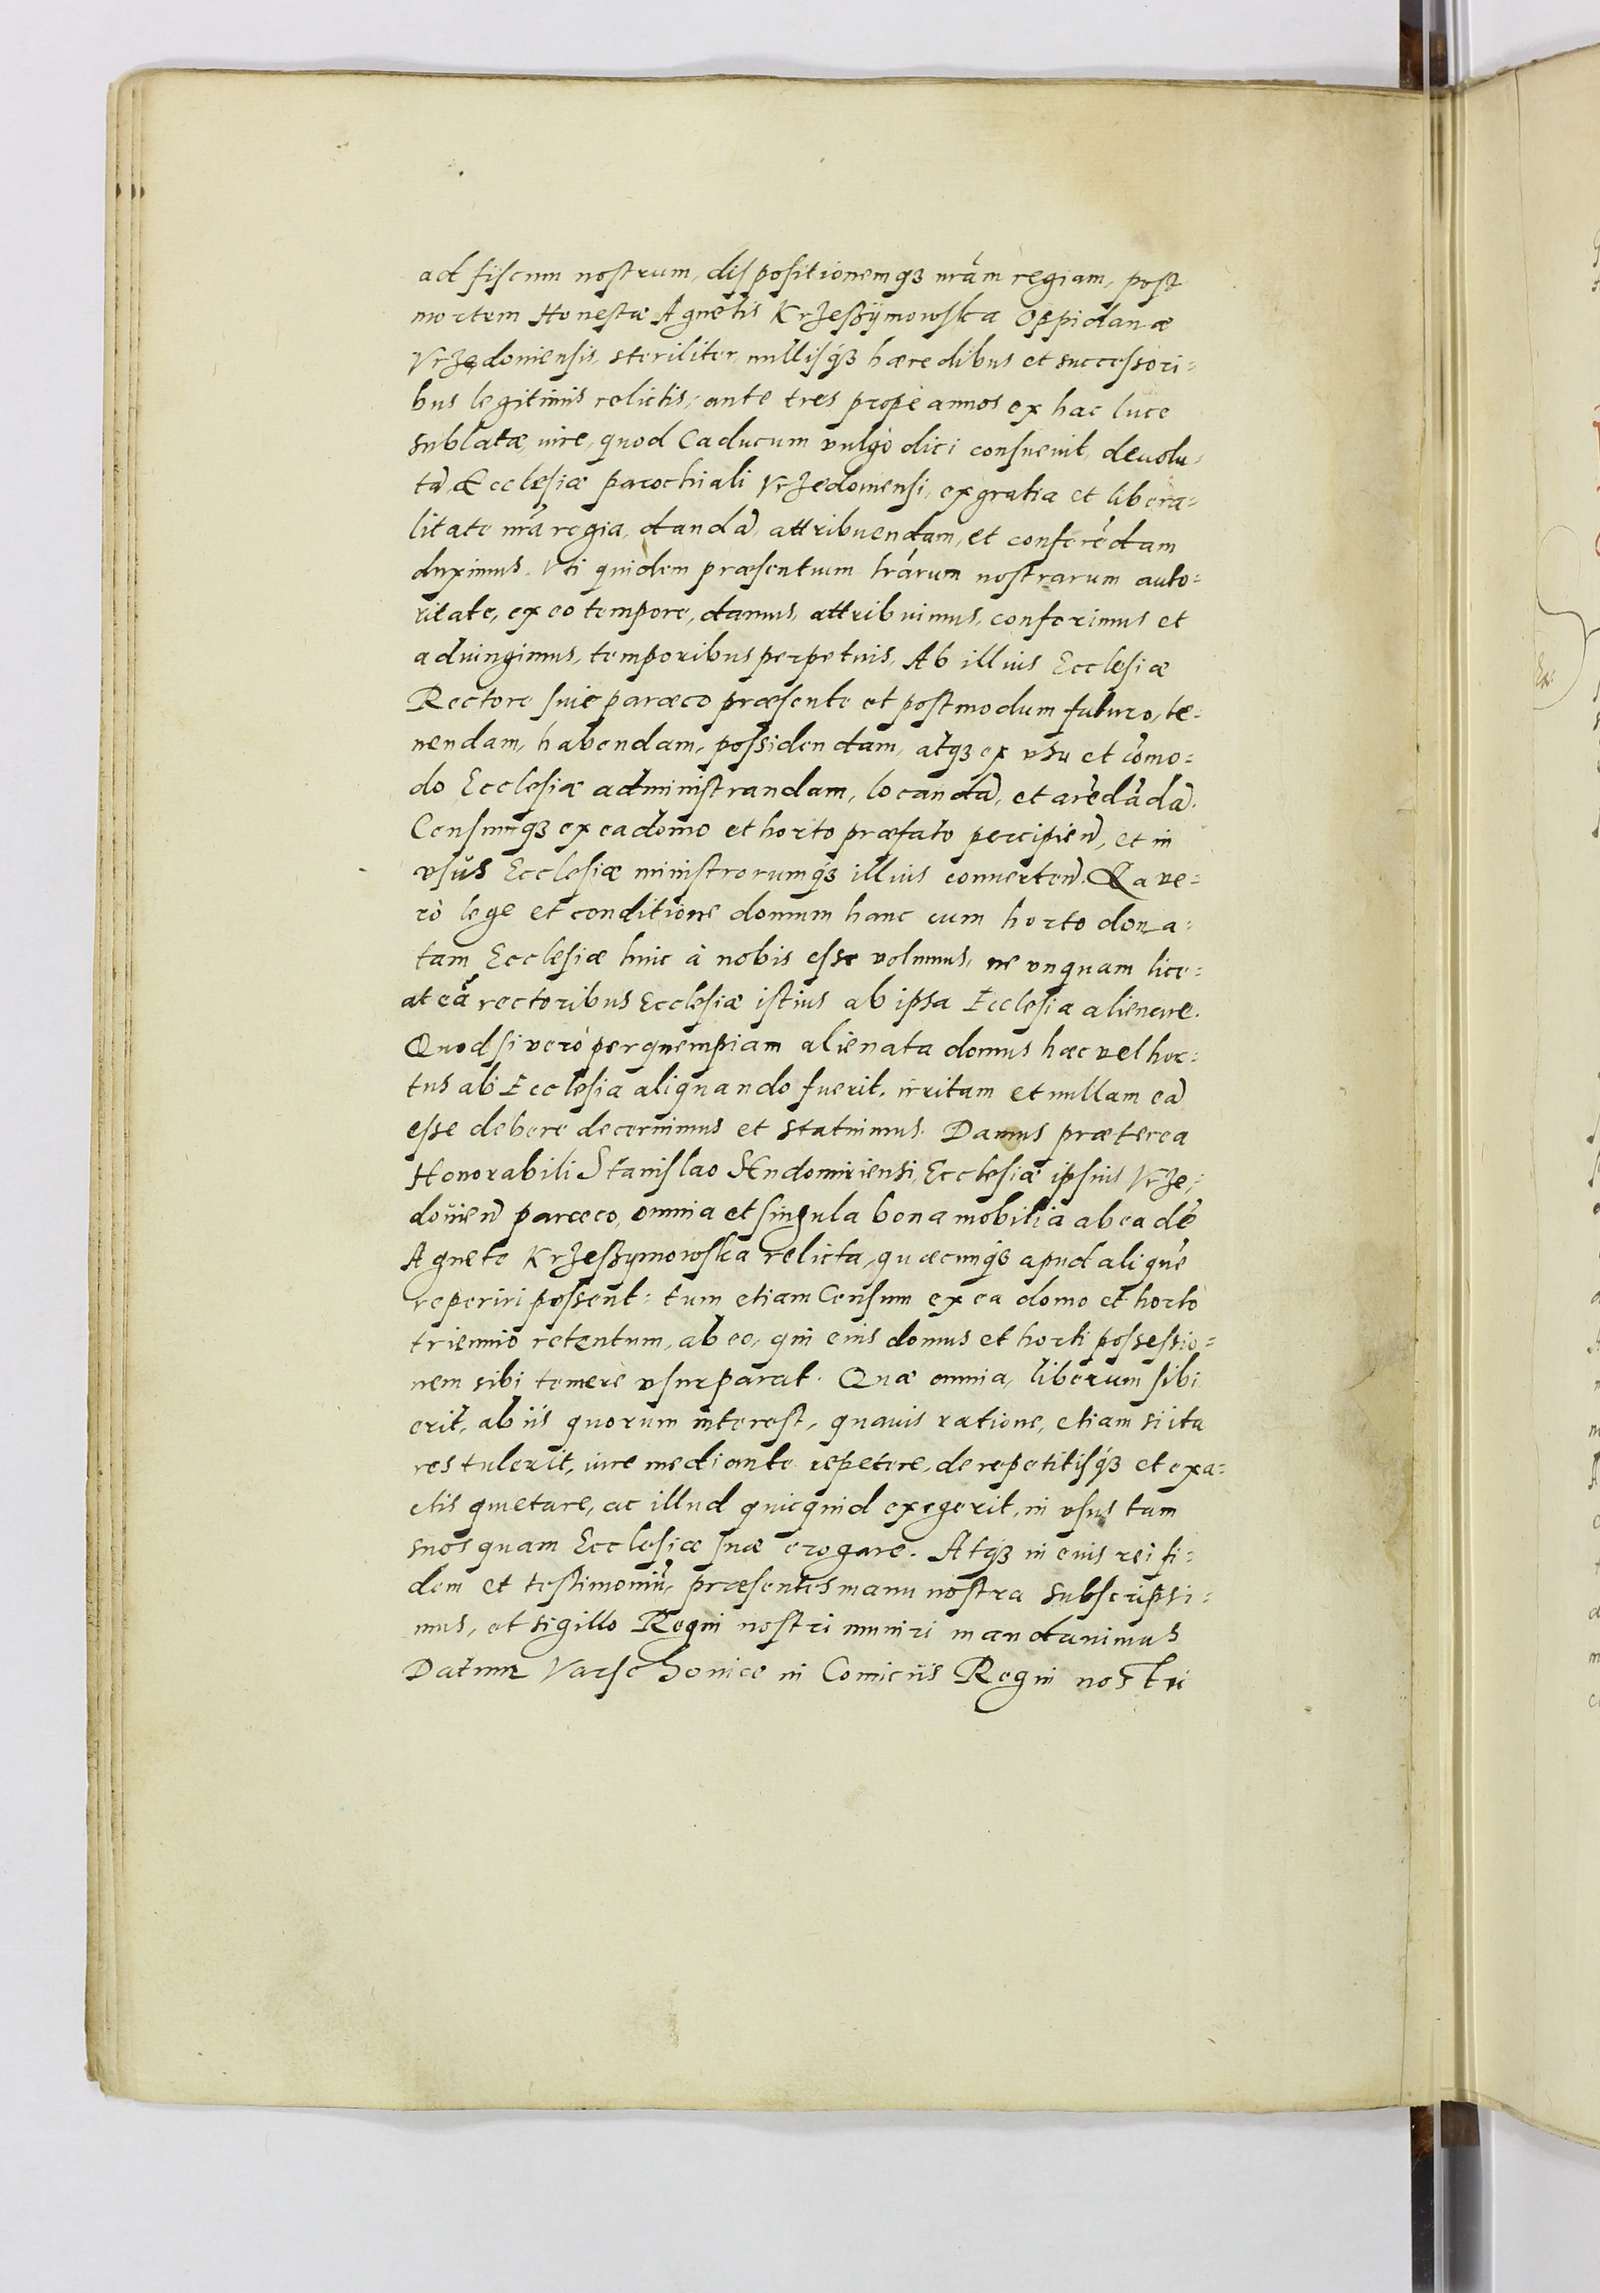 ad fiscum nostrum, dispositionemqꝫ nrãm regiam, post
mortem Honestæ Agnetis Krzeßÿmowska Oppidanæ
Vrzędoviensis, steriliter, nullisqꝫ hæredibus et successori=
bus legitimis relictis, ante tres propè annos ex hac luce
sublatæ, iure, quod Caducum vulgò dici consueuit, deuolu=
tã, Ecclesiæ parochiali Vrzedouiensi, ex gratia et libera=
litate nrã regia, dandã, attribuendam, et conferẽdam
duximus. Vti quidem præsentium lrãrum nostrarum auto=
ritate, ex eo tempore, damus, attribuimus, conferimus et
adiungimus, temporibus perpetuis, Ab illius Ecclesiæ
Rectore siue paræco præsente et postmodum futuro, te=
nendam, habendam, possidendam, atqꝫ ex vsu et cõmo=
do Ecclesiæ administrandam, locandã, et arẽdãdã.
Censumqꝫ ex ea domo et horto præfato percipien̄, et in
vsus Ecclesiæ ministrorumqꝫ illius conuerten̄. Ea ve=
rò lege et conditione domum hanc cum horto dona=
tam Ecclesiæ huic à nobis esse volumus, ne vnquam lice=
at eã rectoribus Ecclesiæ istius ab ipsa Ecclesia alienare.
Quod si verò per quempiam alienata domus hæc vel hor=
tus ab Ecclesia aliquando fuerit, irritam et nullam eã
esse debere decernimus et statuimus. Damus præterea
Honorabili Stanislao Sendomiriensi, Ecclesiæ ipsius Vrze=
douien̄ paræco, omnia et singula bona mobilia ab eadẽ
Agnete Krzeßymowska relicta, quæcunqꝫ apud aliquẽ
reperiri possent: tum etiam Censum ex ea domo et horto
triennio retentum, ab eo, qui eius domus et horti possessio=
nem sibi temerè vsurparat. Quæ omnia, liberum sibi
erit, ab iis quorum interest, quauis ratione, etiam si ita
res tulerit, iure mediante repetere, de repetitisqꝫ et exa=
ctis quietare, ac illud quicquid exegerit, in vsus tam
suos quam Ecclesiæ suæ erogare. Atqꝫ in euis rei fi=
dem et testimoniũ, præsentes manu nostra subscripsi=
mus, et sigillo Regni nostri muniri mandauimus
Datum Varschouiæ in Comiciis Regni nostri